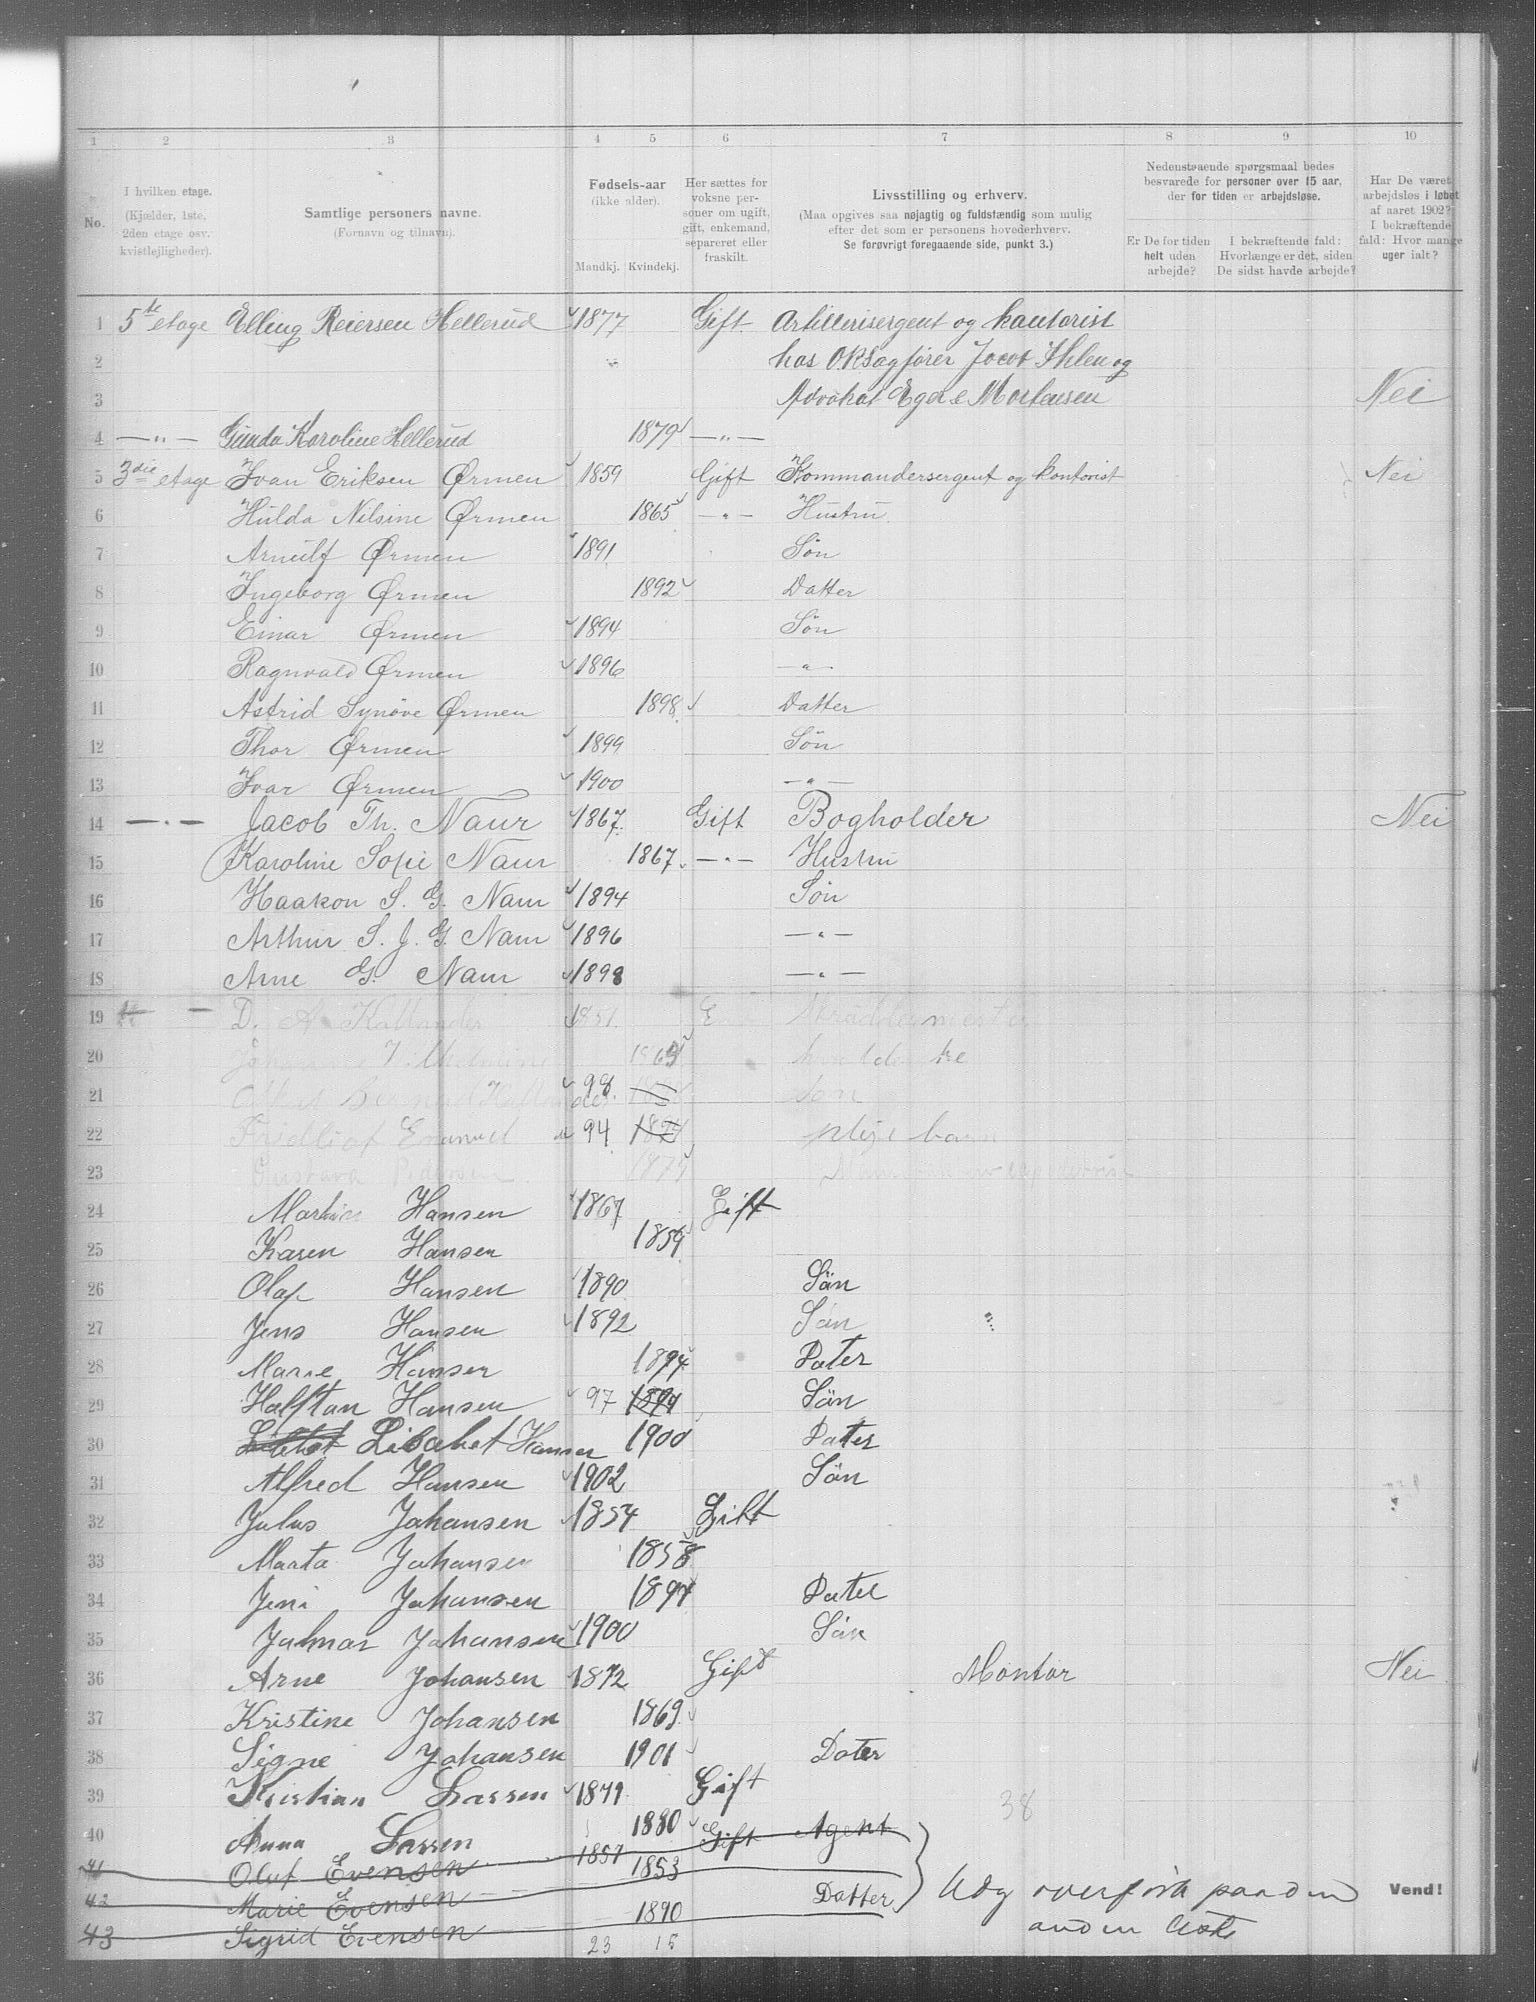 1 2 3 4 5 6 7 8 9 10
No.
I hvilken etage.
(Kjælder, 1ste, 2den etage osv. kvistlejligheder).
Samtlige personers navne.
(Fornavn og tilnavn).
Fødsels-aar
(ikke alder).
Mandkj. Kvindekj.
Her sættes for voksne personer om ugift, gift, enkemand, separeret eller fraskilt.
Livsstilling og erhverv.
(Maa opgives saa nøjagtig og fuldstændig som mulig efter det som er personens hovederhverv.
Se forøvrigt foregaaende side, punkt 3.)
Nedenstaaende spørgsmaal bedes besvarede for personer over 15 aar, der for tiden er arbejdsløse.
Er De for tiden helt uden arbejde?
I bekræftende fald: Hvorlænge er det, siden De sidst havde arbejde?
Har De været arbejdsløs i løbet af aaret 1902? I bekræftende fald: Hvor mange uger ialt?
1 5te etage Elling Reiersen Hellerud 1877 Gift Artillerisergent og kontorist
2 hos O.R.Sagfører Jacob Ihlen og
3 Advokat Egde Mortensen Nei
4 — " — Gunda Karoline Hellerud 1879 — " —
5 3die etage Ivan Eriksen Ørmen 1859 Gift Kommandersergent og kontorist Nei
6 Hulda Nilsine Ørmen 1865 — " — Hustru
7 Arnulf Ørmen 1891 Sön
8 Ingeborg Ørmen 1892 Datter
9 Einar Ørmen 1894 Sön
10 Ragnvald Ørmen 1896 — " —
11 Astrid Synöve Ørmen 1898 Datter
12 Thor Ørmen 1899 Sön
13 Ivar Ørmen 1900 — " —
14 — " — Jacob Th. Naur 1867 Gift Bogholder Nei
15 Karoline Sofie Naur 1867 — " — Hustru
16 Haakon S. G. Naur 1894 Sön
17 Arthur S. J. G. Naur 1896 — " —
18 Arne G. Naur 1898 — " —
19 D. A Kallander 1851 Skræddermester
20 Vilhelmine 186
21 Bernard 98
22 Emanuel 94 pleje barn
23 Gustava Pedersen 187
24 Martin Hansen 1867 Gift
25 Karen Hansen 1859
26 Olaf Hansen 1890 Sön
27 Jens Hansen 1892 Sön
28 Marie Hansen 1894 Dater
29 Halftan Hansen 97 1894 Sön
30 Lisabet Hansen 1900 Dater
31 Alfred Hansen 1902 Sön
32 Julus Johansen 1854 Gift
33 Marta Johansen 1858
34 Jeni Johansen 1894 Dater
35 Jalmar Johansen 1900 Sön
36 Arne Johansen 1872 Gift Montør Nei
37 Kristine Johansen 1869
38 Signe Johansen 1901 Dater
39 Kristian Larsen 1871 Gift
38
40 Anna Larsen 1880
41 Oluf Evensen 1857 Gift Agent
42 Marie Evensen 1853
43 Sigrid Evensen 1890 Datter
overført paa den
anden liste
Vend!
23 15